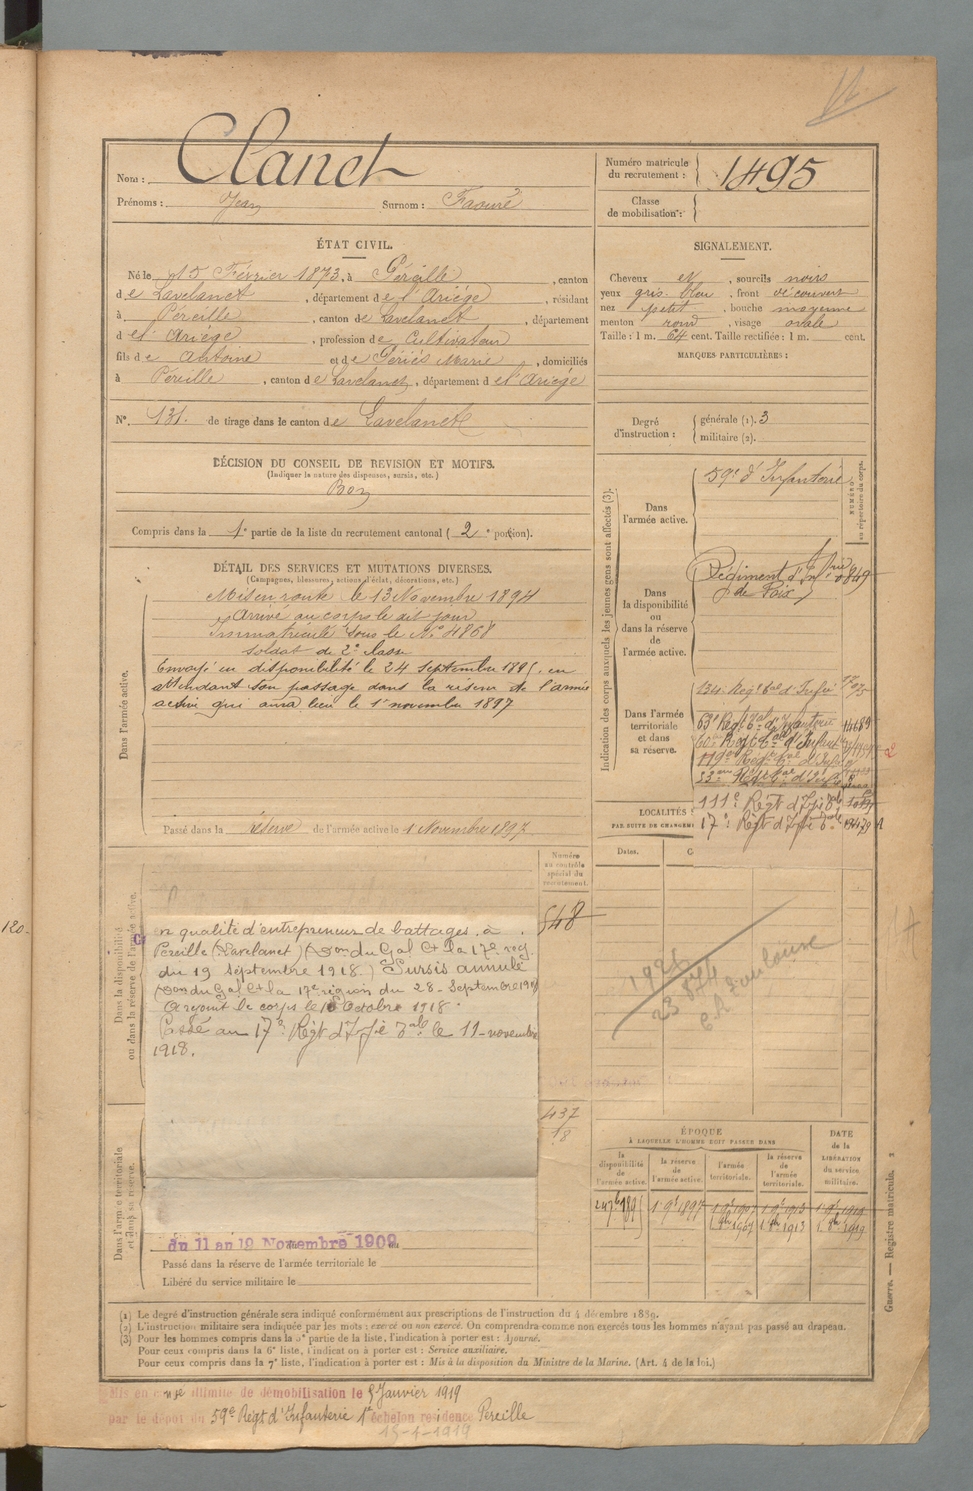 Nom : Clanet
Prénoms : Jean Surnom : Faouré
Numéro matricule
du recrutement : 1495
Classe
de mobilisation :
ÉTAT CIVIL.
Né le 15 Février 1873, à Péreille, canton
de Lavelanet, département de l'Ariège, résidant
à Péreille, canton de Lavelanet, département
d el' Ariège, profession de Cultivateur
fils de Antoine et de Périés Marie, domiciliés
à Péreille, canton de Lavelanet, département d el'Ariège
No. 131. de tirage dans le canton de Lavelanet
SIGNALEMENT.
Cheveux et, sourcils noirs
yeux gris-bleu, front découvert
nez petit, bouche moyenne
menton rond, visage ovale
Taille : 1 m. 64 cent. Taille rectifiée : 1 m. cent.
MARQUES PARTICULIÈRES :
Degré
d'instruction :
générale (1). 3
militaire (2).
DÉCISION DU CONSEIL DE REVISION ET MOTIFS.
(Indiquer la nature des dispenses, sursis, etc.)
Bon
Compris dans la 1e partie de la liste du recrutement cantonal ( 2e portion).
DÉTAIL DES SERVICES ET MUTATIONS DIVERSES.
(Campagnes, blessures, actions d'éclat, décorations, etc.)
Dans l'armée active.
Mis en route le 13 Novembre 1894
Arrivé au corps le dit jour
Immatriculé sous le No 4868
Soldat de 2e classe
Envoyé en disponibilité le 24 septembre 1895, en
attendant son passage dans la réserve de l'armée
active qui aura lieu le 1er novembre 1897
Passé dans la réserve de l'armée active le 1 Novembre 1897
Indication des corps auxquels les jeunes gens sont affectés (3).
NUMÉRO
au répertoire du corps.
Dans
l'armée active.
59e d'Infanterie
Dans
la disponibilité
ou
dans la réserve
de
l'armée active.
Régiment d'Inf rie 0849
de Foix
Dans l'armée
territoriale
et dans
sa réserve.
134 Régt tal d'Infie
119e Régt tal d'Infie
111e Régt d'Infie tale
17e Régt d'Infie tale
LOCALITÉS
PAR SUITE DE CHANGEM
Dates. C
Numéro
au contrôle
spécial du
recrutement.
548
Dans la disponibilité
ou dans la réserve de l'armée active.
en qualité d'entrepreneur de battages à
Péreille (Lavelanet) (Don du Gal Ct la 17e reg.
du 19 septembre 1918.) Sursis annulé
(Don du Gal Ct la 17e région du 28-Septembre 1918)
Arrivé au 17e Régt d'Infie tale le 11-novembre
1918.
1926
23 874
ch Toulouse
437
18
Dans l'armée territoriale
et dans sa réserve.
du 11 au 19 Novembre 1909
Passé dans la réserve de l'armée territoriale le
Libéré du service militaire le
ÉPOQUE
À LAQUELLE L'HOMME DOIT PASSER DANS
DATE
de la
LIBÉRATION
du service
militaire.
la
disponibilité
de
l'armée active.
la réserve
de
l'armée active.
l'armée
territoriale.
la réserve
de
l'armée
territoriale.
24 7b 1895 1. 9b 1897
(1) Le degré d'instruction générale sera indiqué conformément aux prescriptions de l'instruction du 4 décembre 1889.
(2) L'instruction militaire sera indiquée par les mots : exercé ou non exercé. On comprendra comme non exercés tous les hommes n'ayant pas passé au drapeau.
(3) Pour les hommes compris dans la 2e partie de la liste, l'indication à porter est : Ajourné.
Pour ceux compris dans la 6e liste, l'indication à porter est : Service auxiliaire.
Pour ceux compris dans la 7e liste, l'indication à porter est : Mis à la disposition du Ministre de la Marine. (Art. 4 de la loi.)
Guerre. — Registre matricule. 2
Mis en congé illimité de démobilisation le 5 Janvier 1919
par le dépôt du 59e Régt d'Infanterie 1e échelon residence Péreille
15-1-1919
120